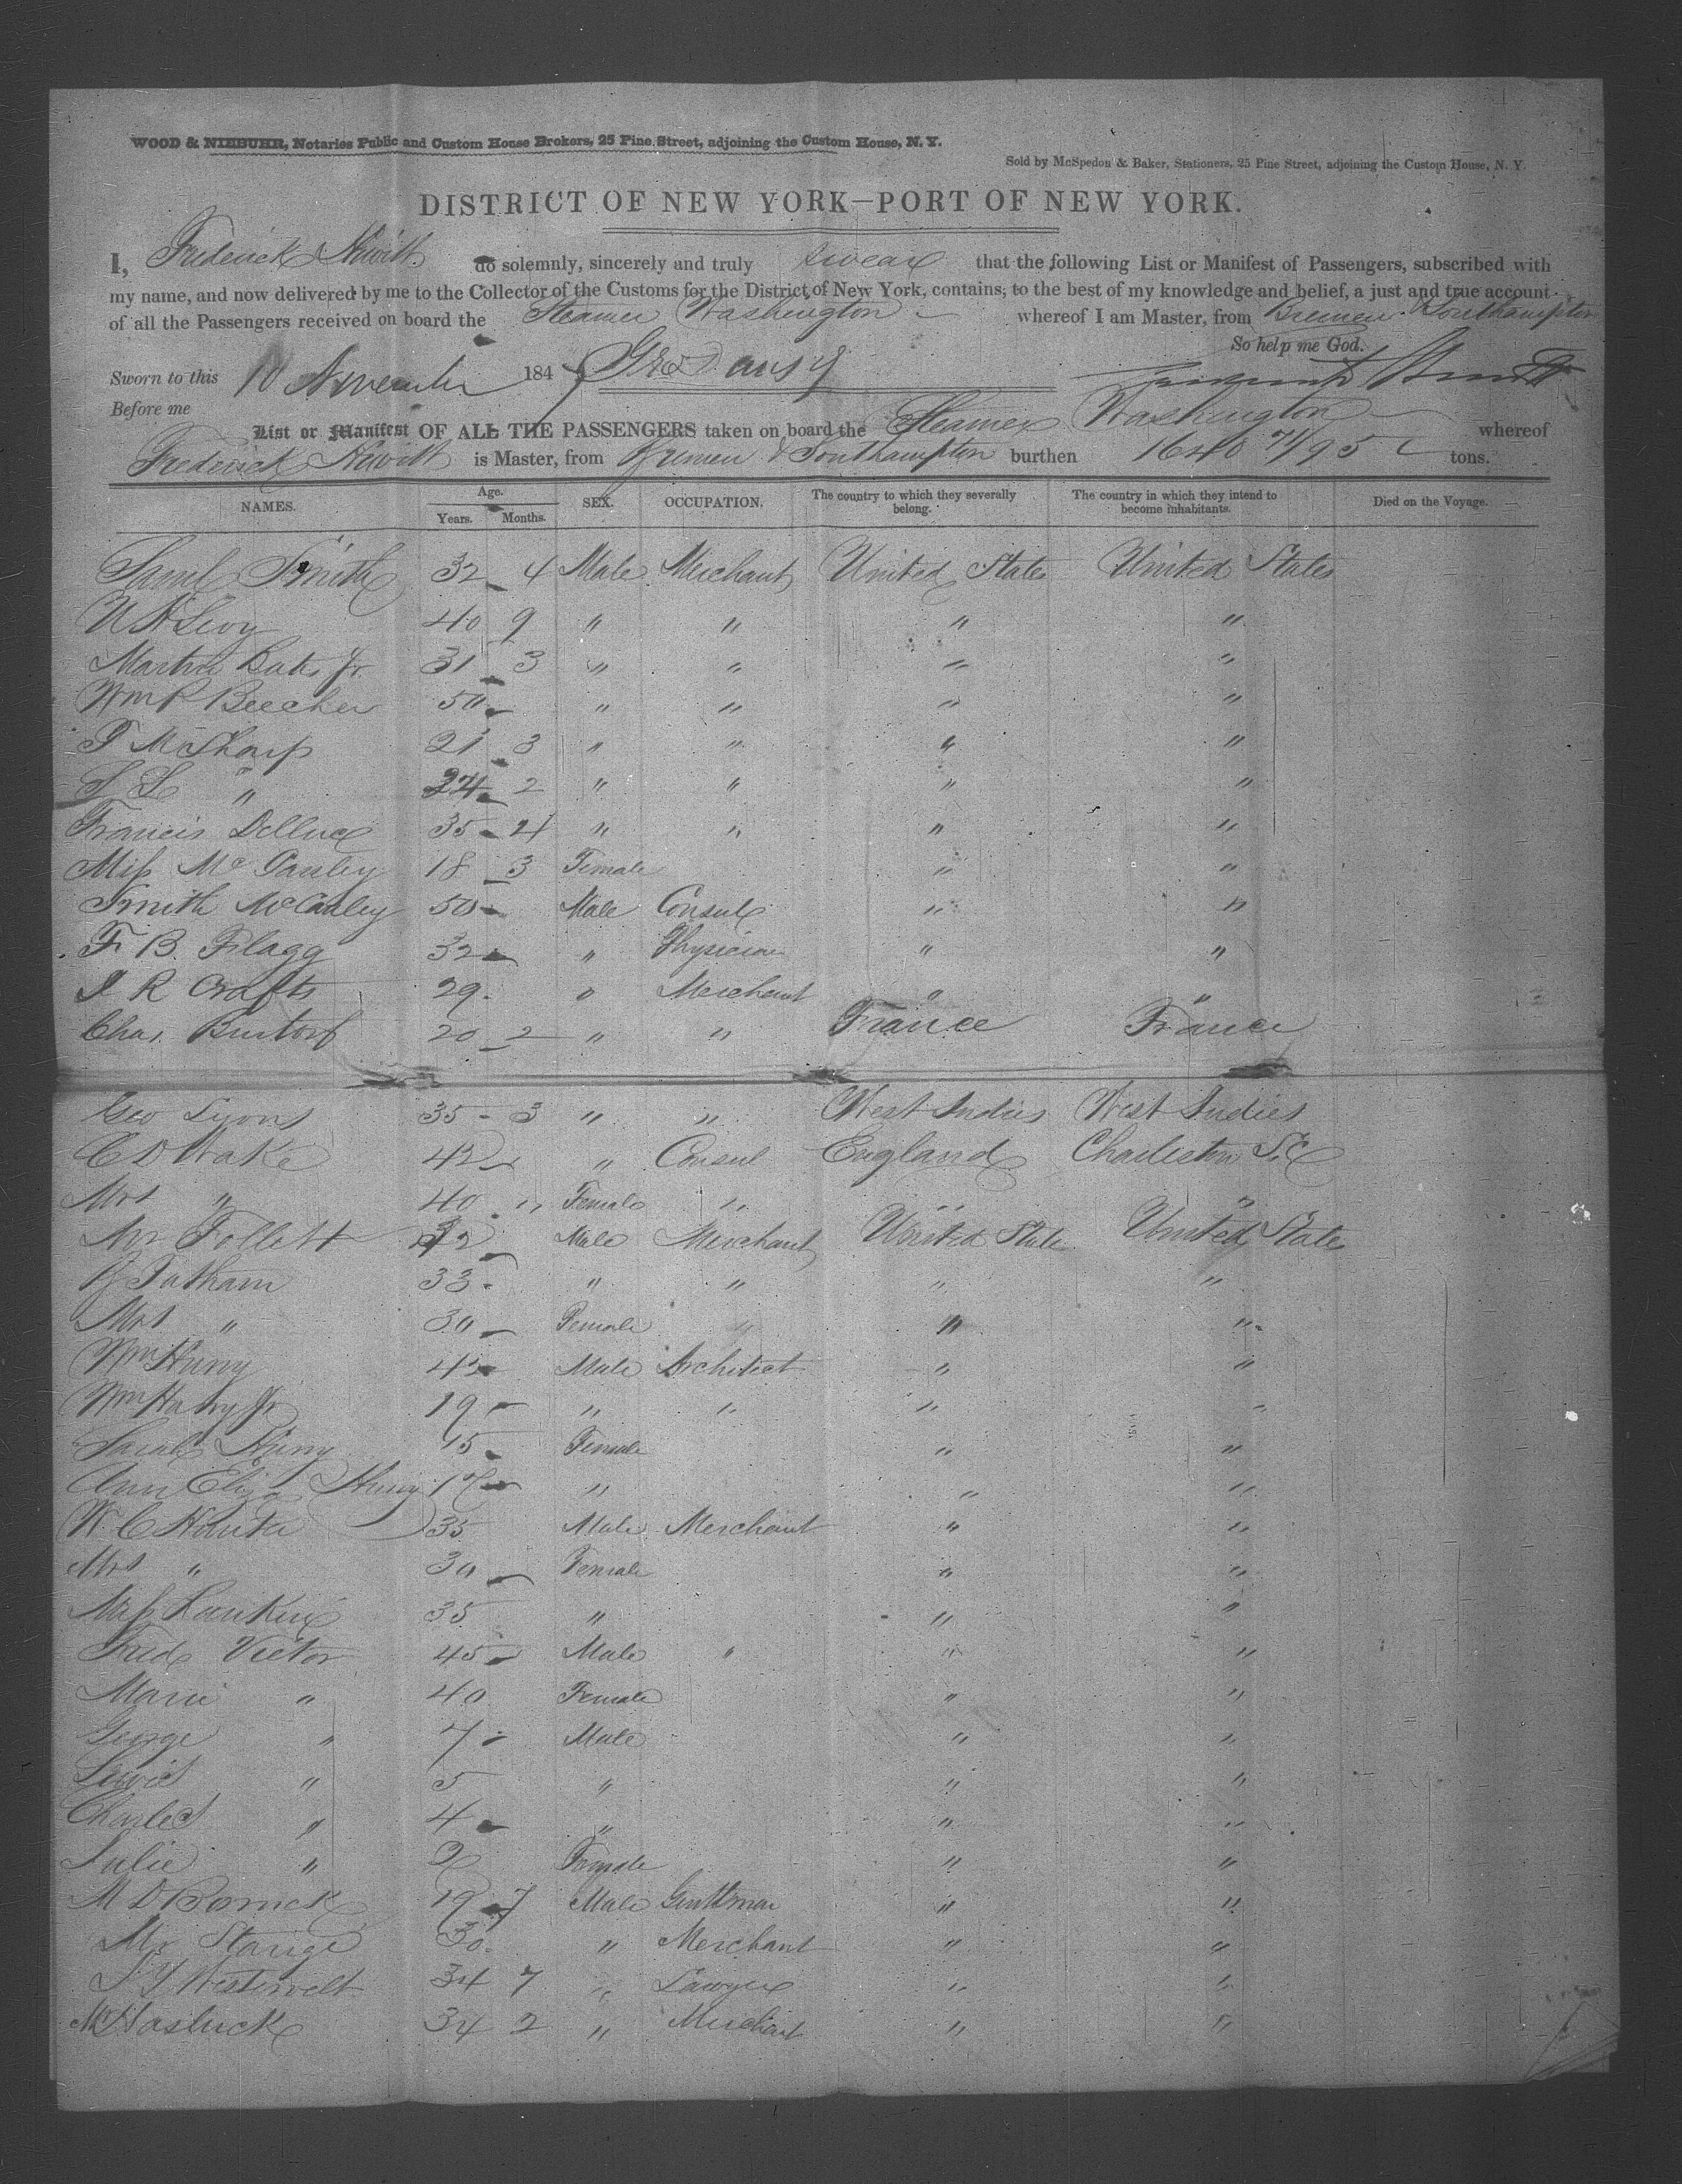 WOOD & NIEBUHR, Notaries Public and Custom House Brokers, 25 Pine Street, adjoining the Custom House, N. Y.
Sold by McSpedon & Baker, Stationers, 25 Pine Street, adjoining the Custom House, N. Y.
DISTRICT OF NEW YORK—PORT OF NEW YORK.
I, Frederick Hewitt do solemnly, sincerely and truly swear that the following List or Manifest of Passengers, subscribed with
my name, and now delivered by me to the Collector of the Customs for the District of New York, contains, to the best of my knowledge and belief, a just and true account
of all the Passengers received on board the Steamer Washington whereof I am Master, from Bremen & Southampton
So help me God.
Sworn to this 10 November 184
Before me
List or Manifest OF ALL THE PASSENGERS taken on board the Steamer Washington whereof
Frederick Hewitt is Master, from Bremen & Southampton burthen 1640 71/95 tons.
NAMES. Age. Years. Months. SEX. OCCUPATION. The country to which they severally belong. The country in which they intend to become inhabitants. Died on the Voyage.
Saml Smith 32 4 Male Merchant United States United States
U H Levy 40 9 " " " "
Martin Bates Jr. 31 3 " " " "
Wm P Beecher 50 " " " "
T McSharp 21 3 " " " "
S L " 24 2 " " " "
Francis Delluc 35 - 4 " " " "
Miss Mc Cauley 18 3 Female " "
Smith McCauley 50 - Male Consul " "
F. B. Flagg 32 - " Physician " "
J R Crafts 29. " Merchant " "
Chas. Burtorf 20 2 " " France France
Geo Lyons 35 - 3 " " West Indies West Indies
C D Wake 42 " Consul England Charleston S.C
Mrs " 40 " Female " " "
Mr Follett 32 Male Merchant United State United States
Tatham 33 - " " " "
Mrs " 30 - Female " " "
Wm Hurry 45 Male Architect " "
Wm Hurry Jr 19 - " " " "
Sarah Hurry 15 - Female " "
Ann Eliza Hurry 17 - " " "
W. C Hunter 35 Male Merchant " "
Mrs " 30 - Female " "
Miss Rankin 35 " " "
Fred Victor 45 - Male " " "
Marie " 40 Female " "
George " 7 - Male " "
Lewis " 5 " " "
Charles " 4 - " " "
Julie " 2 Female " "
M D 19 7 Male Gentleman " "
Mr Stange 30. " Merchant " "
Westervelt 34 7 " Lawyer " "
Mr Hasluck 34 2 " Merchant " "